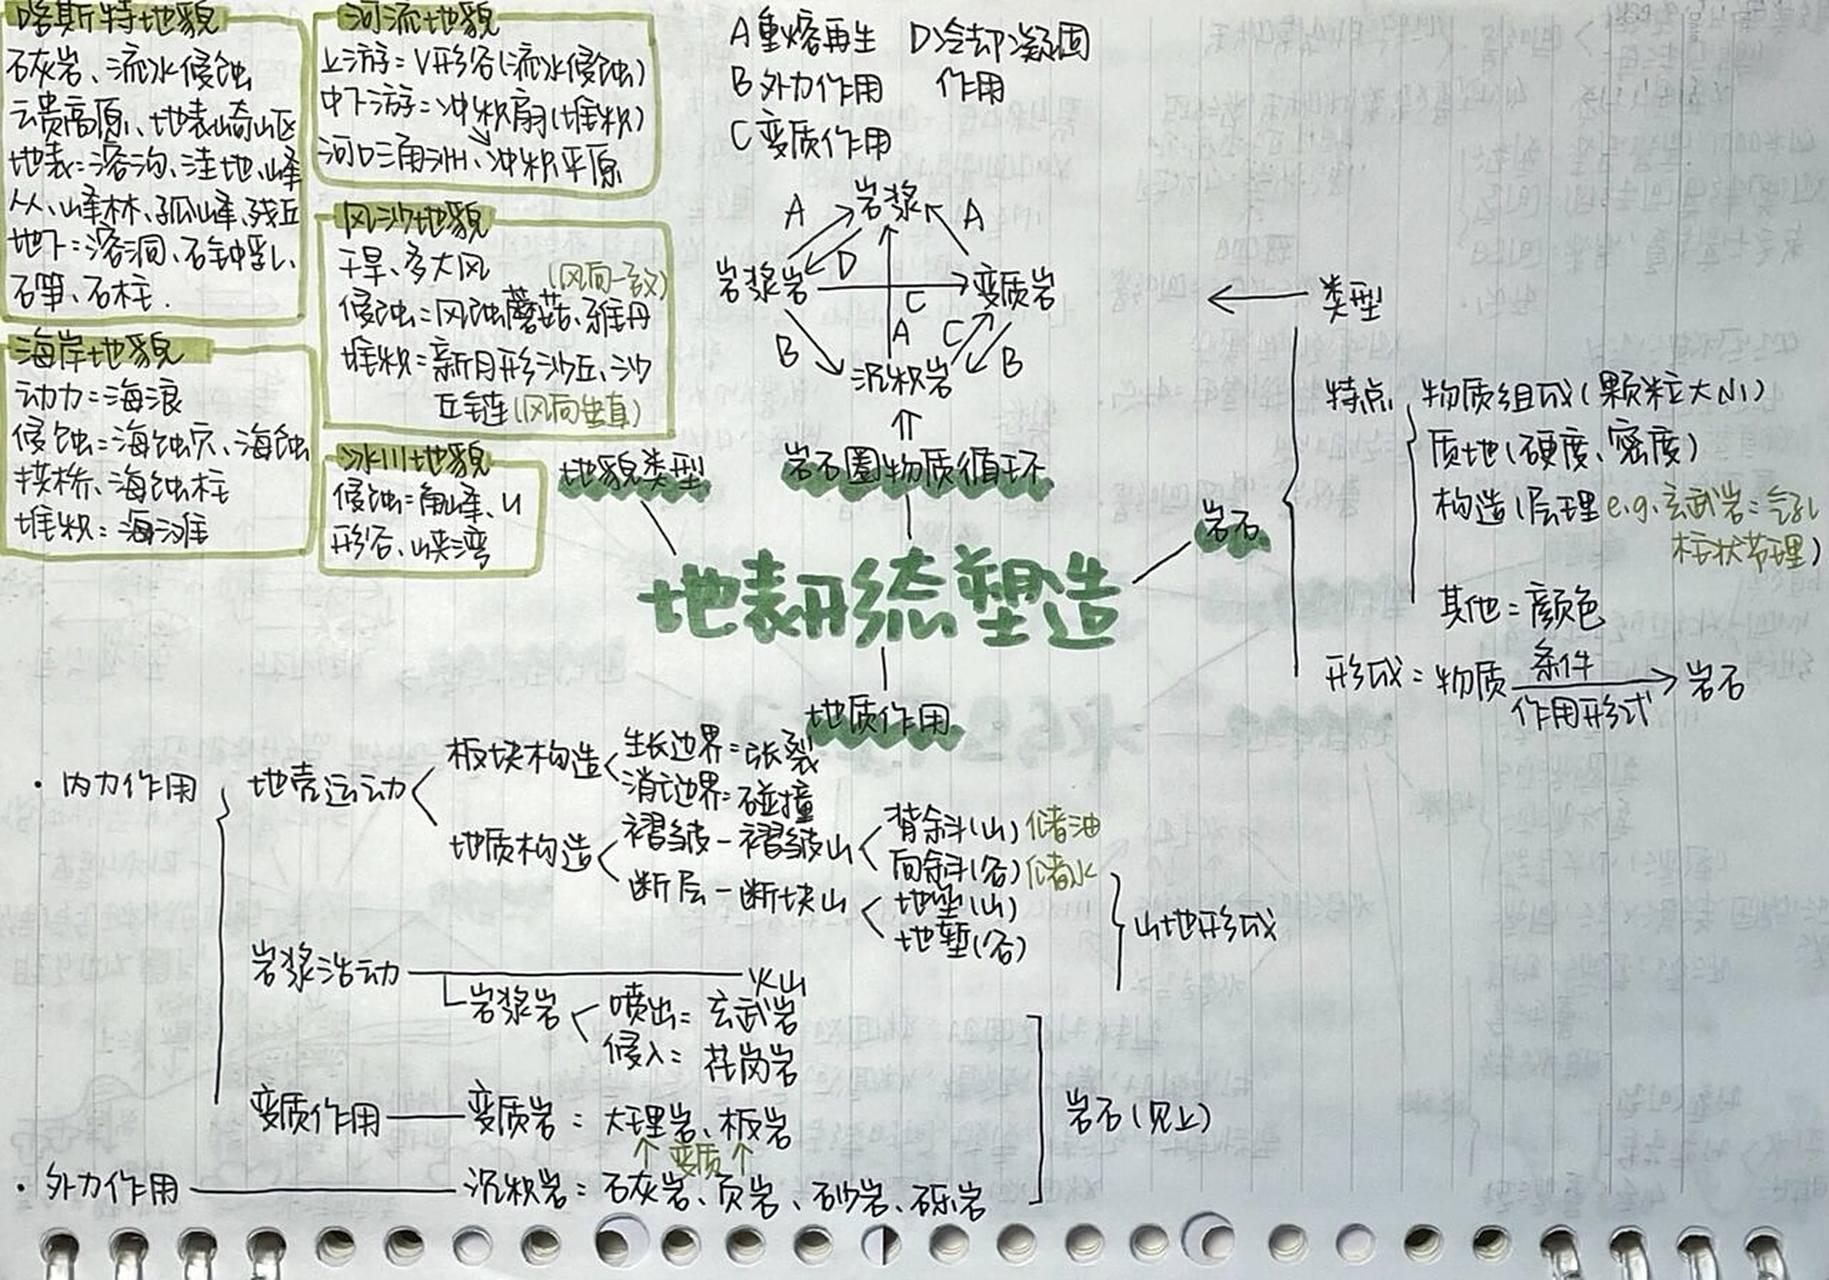 喀斯特地貌
石灰岩、流水侵蚀
云贵高原、地表崎岖
地表:溶沟、洼地、峰
丛、峰林、孤峰、残丘
地下:溶洞、石钟乳、
石笋、石柱.
海岸地貌
动力:海浪
侵蚀:海蚀穴、海蚀
拱桥、海蚀柱
堆积:海滩
河流地貌
上游:V形谷(流水侵蚀)
中下游:冲积扇(堆积)
河口三角洲、冲积平原
风沙地貌
干旱、多大风
(风向一致)
侵蚀:风蚀蘑菇、雅丹
堆积:新月形沙丘、沙
丘链(风向垂直)
冰川地貌
侵蚀:角峰、U
形谷、峡湾
地貌类型
A重熔再生 D冷却凝固
B外力作用 作用
C变质作用
A 岩浆 A
D
岩浆岩 变质岩
C
B A C B
沉积岩
岩石圈物质循环
地表形态塑造
岩石
类型
特点 物质组成(颗粒大小)
质地(硬度、密度)
构造(层理 e.g.玄武岩:气孔
柱状节理)
其他:颜色
形成:物质 条件 岩石
作用形式
地质作用
·内力作用
地壳运动
板块构造
生长边界:张裂
消亡边界:碰撞
地质构造
褶皱-褶皱山
背斜(山)储油
向斜(谷)储水
断层-断块山
地垒(山)
地堑(谷)
山地形成
岩浆活动 火山
岩浆岩
喷出:玄武岩
侵入:花岗岩
变质作用 变质岩:大理岩、板岩
↑变质↑
岩石(见上)
·外力作用 沉积岩:石灰岩、页岩、砂岩、砾岩